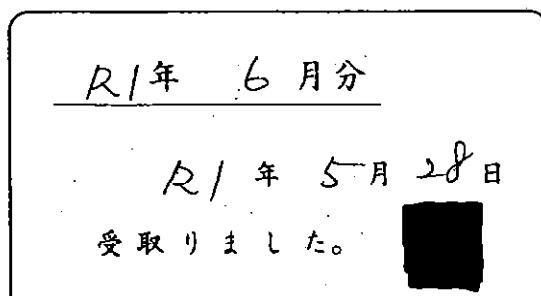 R1年 6月分
R1年 5月 28日
受取りました。